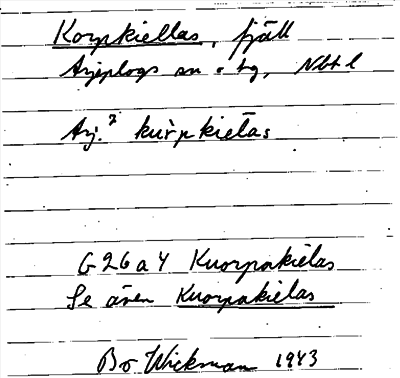 Korpkiellas, fjäll
Arjeplogs sn o tg, Nbtl
Arj.² kur̀pkietas
G 26 a 4 Kuorpakièlas
Se även Kuorpakièlas
Bo Wickman 1943